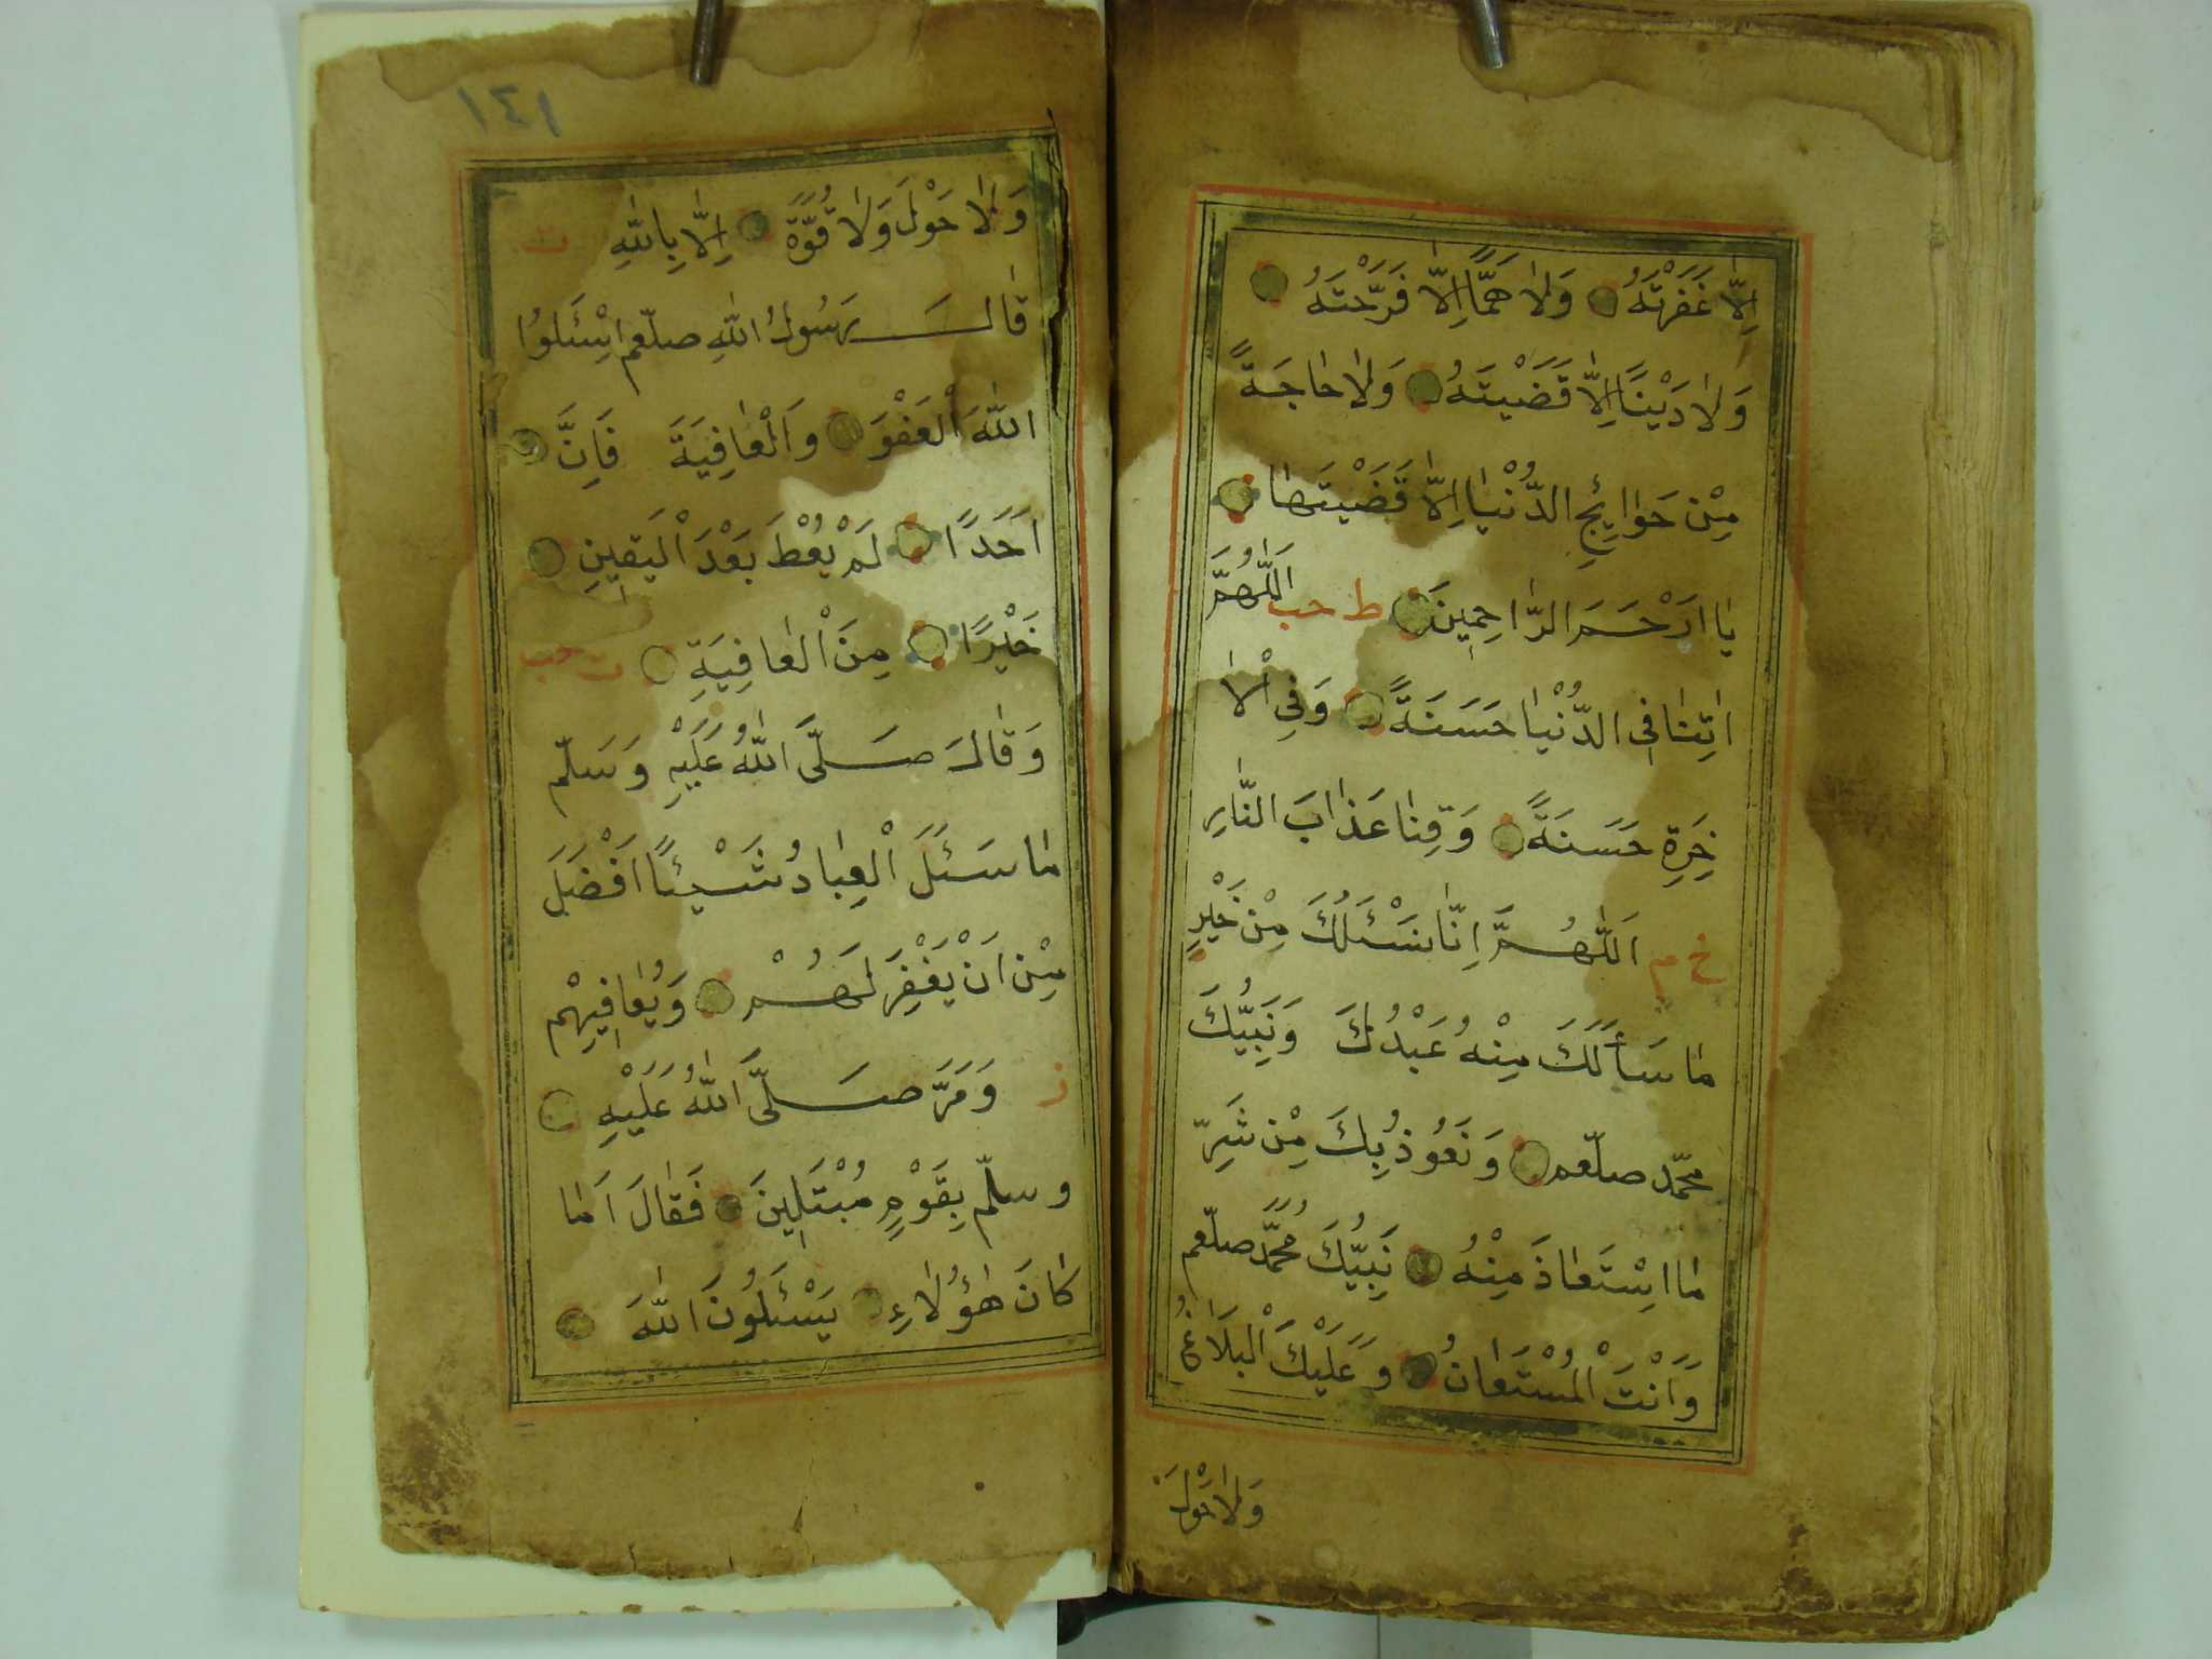 اِلّٰا غَفَرْتَهُ وَلٰا هَمًّا اِلّٰا فَرَّجْتَهُ
وَلٰا دَيْنًا اِلّٰا قَضَيْتَهُ وَلٰا حٰاجَةً
مِنْ حَوٰائِجِ الدُّنْيٰا اِلّٰا قَضَيْتَهٰا
يٰا اَرْحَمَ الرّٰاحِمِينَ ط حب اَللّٰهُمَّ
اٰتِنٰا فِى الدُّنْيٰا حَسَنَةً وَفِى الْاٰ
خِرَةِ حَسَنَةً وَقِنٰا عَذٰابَ النّٰارِ
خ م اَللّٰهُمَّ اِنّٰا نَسْئَلُكَ مِنْ خَيْرِ
مٰا سَأَلَكَ مِنْهُ عَبْدُكَ وَنَبِيُّكَ
محمّد صلّعم وَنَعُوذُ بِكَ مِنْ شَرِّ
مٰا اسْتَعٰاذَ مِنْهُ نَبِيُّكَ مُحَمَّدٌ صلّعم
وَاَنْتَ الْمُسْتَعٰانُ وَعَلَيْكَ الْبَلَاغُ
وَلٰا حَوْلَ
١٤١
وَلٰا حَوْلَ وَلٰا قُوَّةَ اِلّٰا بِاللّٰهِ ت
قٰالَ رَسُولُ اللّٰهِ صلّعم اِسْئَلُوا
اللّٰهَ الْعَفْوَ وَالْعٰافِيَةَ فَاِنَّ
اَحَدًا لَمْ يُعْطَ بَعْدَ الْيَقِينِ
خَيْرًا مِنَ الْعٰافِيَةِ ت حب
وَقٰالَ صَلَّى اللّٰهُ عَلَيْهِ وَسَلّم
مٰا سَئَلَ الْعِبٰادُ شَيْئًا اَفْضَلَ
مِنْ اَنْ يَغْفِرَ لَهُمْ وَيُعٰافِيهِمْ
ز وَمَرَّ صَلَّى اللّٰهُ عَلَيْهِ
وسلّم بِقَوْمٍ مُبْتَلِينَ فَقٰالَ اَمٰا
كٰانَ هٰؤُلٰاءِ يَسْئَلُونَ اللّٰهَ